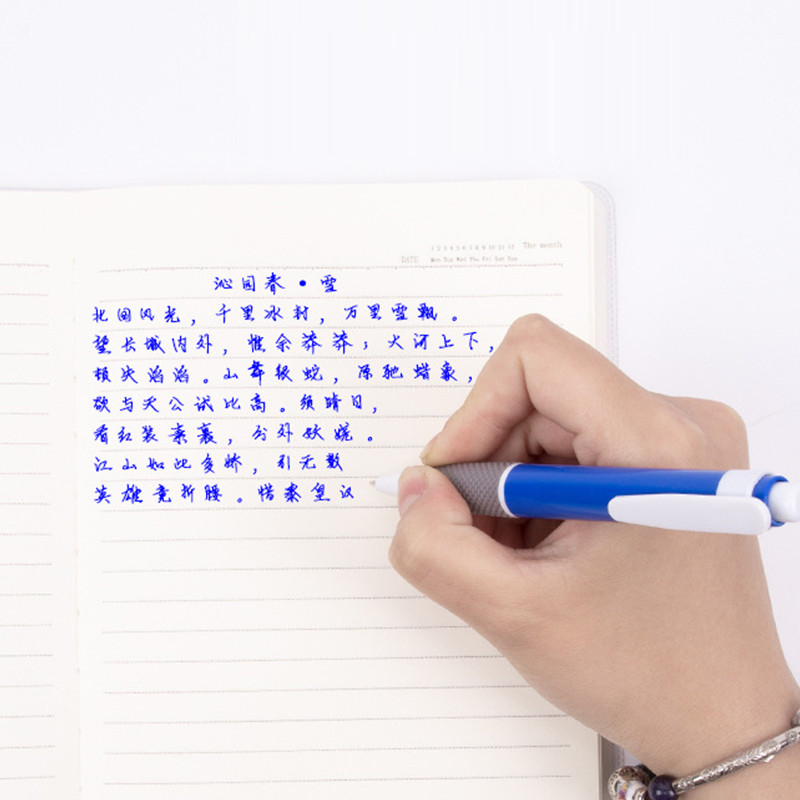 1 2 3 4 5 6 7 8 9 10 11 12 The month
DATE Mon Tue Wed Thu Fri Sat Sun
沁园春•雪
北国风光，千里冰封，万里雪飘。
望长城内外，惟余莽莽；大河上下，
顿失滔滔。山舞银蛇，原驰蜡象，
欲与天公试比高。须晴日，
看红装素裹，分外妖娆。
江山如此多娇，引无数
英雄竞折腰。惜秦皇汉